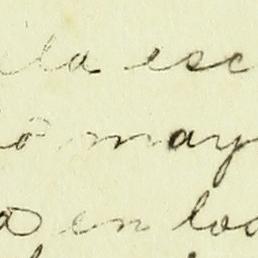 la esc
ó may
en loc